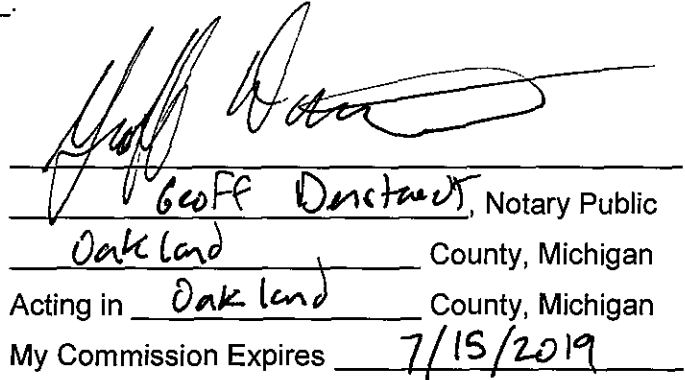 Geoff, Notary Public
Oakland County, Michigan
Acting in Oakland County, Michigan
My Commission Expires 7/15/2019